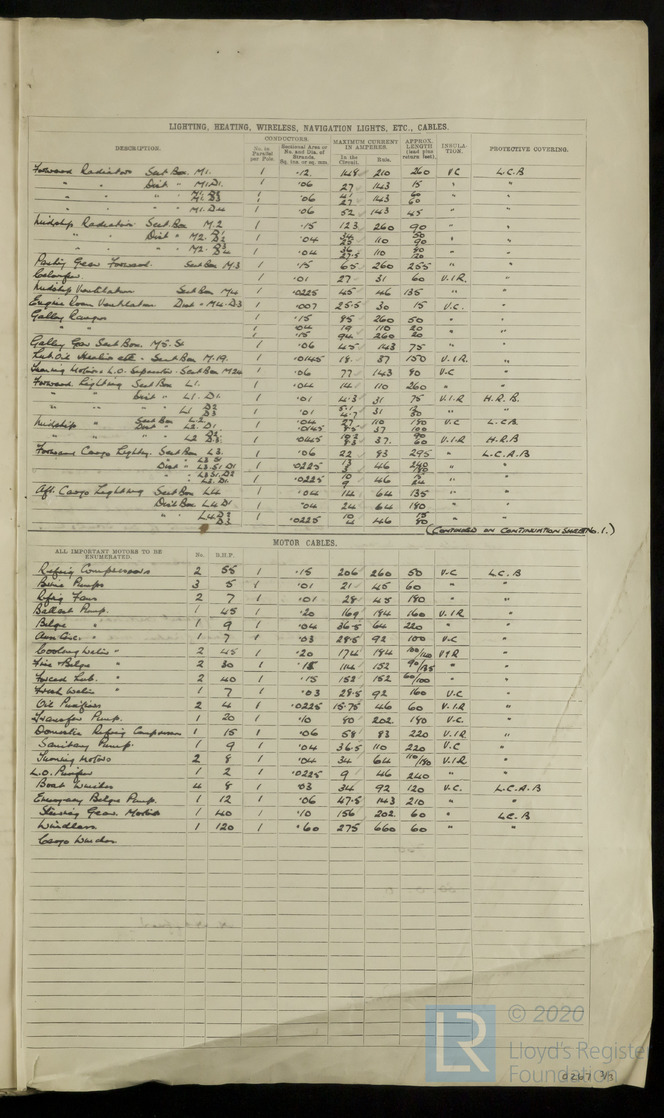 LIGHTING, HEATING, WIRELESS, NAVIGATION LIGHTS, ETC., CABLES.
DESCRIPTION. CONDUCTORS. No. in Parallel per Pole. Sectional Area or No. and Dia. of Strands. Sq. ins. or sq. mm. MAXIMUM CURRENT IN AMPERES. In the Circuit. Rule. APPROX. LENGTH (lead plus return feet). INSULATION. PROTECTIVE COVERING.
Forward Radiators Sect Box M1. 1 .12 148 210 260 V.C L.C.B
" " Dist " M1.D1. 1 .06 27 143 15 " "
" " " 1 .06 27 143 60 " "
" " " M1.D4 1 .06 52 143 45 " "
Midship Radiators Sect Box M.2 1 .15 123 260 90 " "
" " Dist " M2. D1 D2 1 .04 110 50 90 " "
" " " M2. D3 D4 1 .04 110 " "
Gear Forward. Sect Box M.3 1 .15 65 260 255 " "
Calorifier 1 .01 27 31 60 V.I.R. "
Midship Ventilation Sect Box M4 1 .0225 45 46 135 " "
Engine Room Ventilation Dist " M4.D3 1 .007 25.5 30 15 V.C. "
Galley Ranges 1 .15 85 260 50 " "
" " 1 .04 19 110 20 " "
1 .15 94 260 20
Galley Gear Sect Box. M5. 1 .06 45 143 75 " "
Lub. Oil Heaters etc. Sect Box M.19. 1 .0145 18 37 150 V.I.R. "
Turning Motors & L.O. Separator. Sect Box M24 1 .06 77 143 80 V.C "
Forward Lighting Sect Box L1. 1 .04 14 110 260 " "
" " Dist " L1. D1. 1 .01 4.3 31 75 V.I.R H.R.B.
" " " L1 D2 D3 1 .01 5.1 4.7 31 " "
Midship " Sect Box L.2 1 .04 27 110 180 V.C L.C.B
" Dist " L2. D1 .0145 8.5 37 100
" " " L2 D2 D3 1 .0145 37. V.I.R H.R.B
Forward Cargo Lighting. Sect Box L3. 1 .06 22 83 295 " L.C.A.B
Dist " L3.S1.D1 1 .0225 46 " "
" L3.S1.D2 1 .0225 10 9 46 " "
Aft. Cargo Lighting Sect Box L4 1 .04 14 64 135 " "
Dist Box L4 D1 1 .04 24 64 180 " "
" " L4.D2 D3 1 .0225 10 4 46 15 80 " "
(CONTINUED ON CONTINUATION SHEET NO. 1.)
MOTOR CABLES.
ALL IMPORTANT MOTORS TO BE ENUMERATED. No. B.H.P.
Refrig Compressors 2 55 1 .15 206 260 50 V.C L.C.B
Brine Pumps 3 5 1 .01 21 45 60 " "
Refrig Fans 2 7 1 .01 28 45 180 " "
Ballast Pump. 1 45 1 .20 169 184 160 V.I.R "
Bilge " 1 9 1 .04 36.5 64 220 " "
Aux Circ. " 1 7 1 .03 28.5 92 100 V.C "
Cooling Water " 2 45 1 .20 174 184 100/140 V.I.R "
Fire & Bilge " 2 30 1 .15 114 152 90/135 " "
Forced Lub. " 2 40 1 .15 152 152 60/100 " "
Fresh Water " 1 7 1 .03 28.5 92 160 V.C "
Oil Purifiers 2 4 1 .0225 15.75 46 60 V.I.R "
Transfer Pump. 1 20 1 .10 80 202 180 V.C. "
Domestic Refrig Compressor 1 15 1 .06 58 83 220 V.I.R "
Sanitary Pump. 1 9 1 .04 36.5 110 220 V.C "
Turning Motors 2 8 1 .04 34 64 110/180 V.I.R "
L.O. Purifier 1 2 1 .0225 9 46 240 " "
Boat Winches 4 8 1 .03 34 92 120 V.C. L.C.A.B
Emergency Bilge Pump. 1 12 1 .06 47.5 143 210 " "
Steering Gear Motors 1 40 1 .10 156 202 60 " L.C.B
Windlass 1 120 1 .60 275 660 60 " "
Cargo Winches
LR © 2020
Lloyd's Register
Foundation